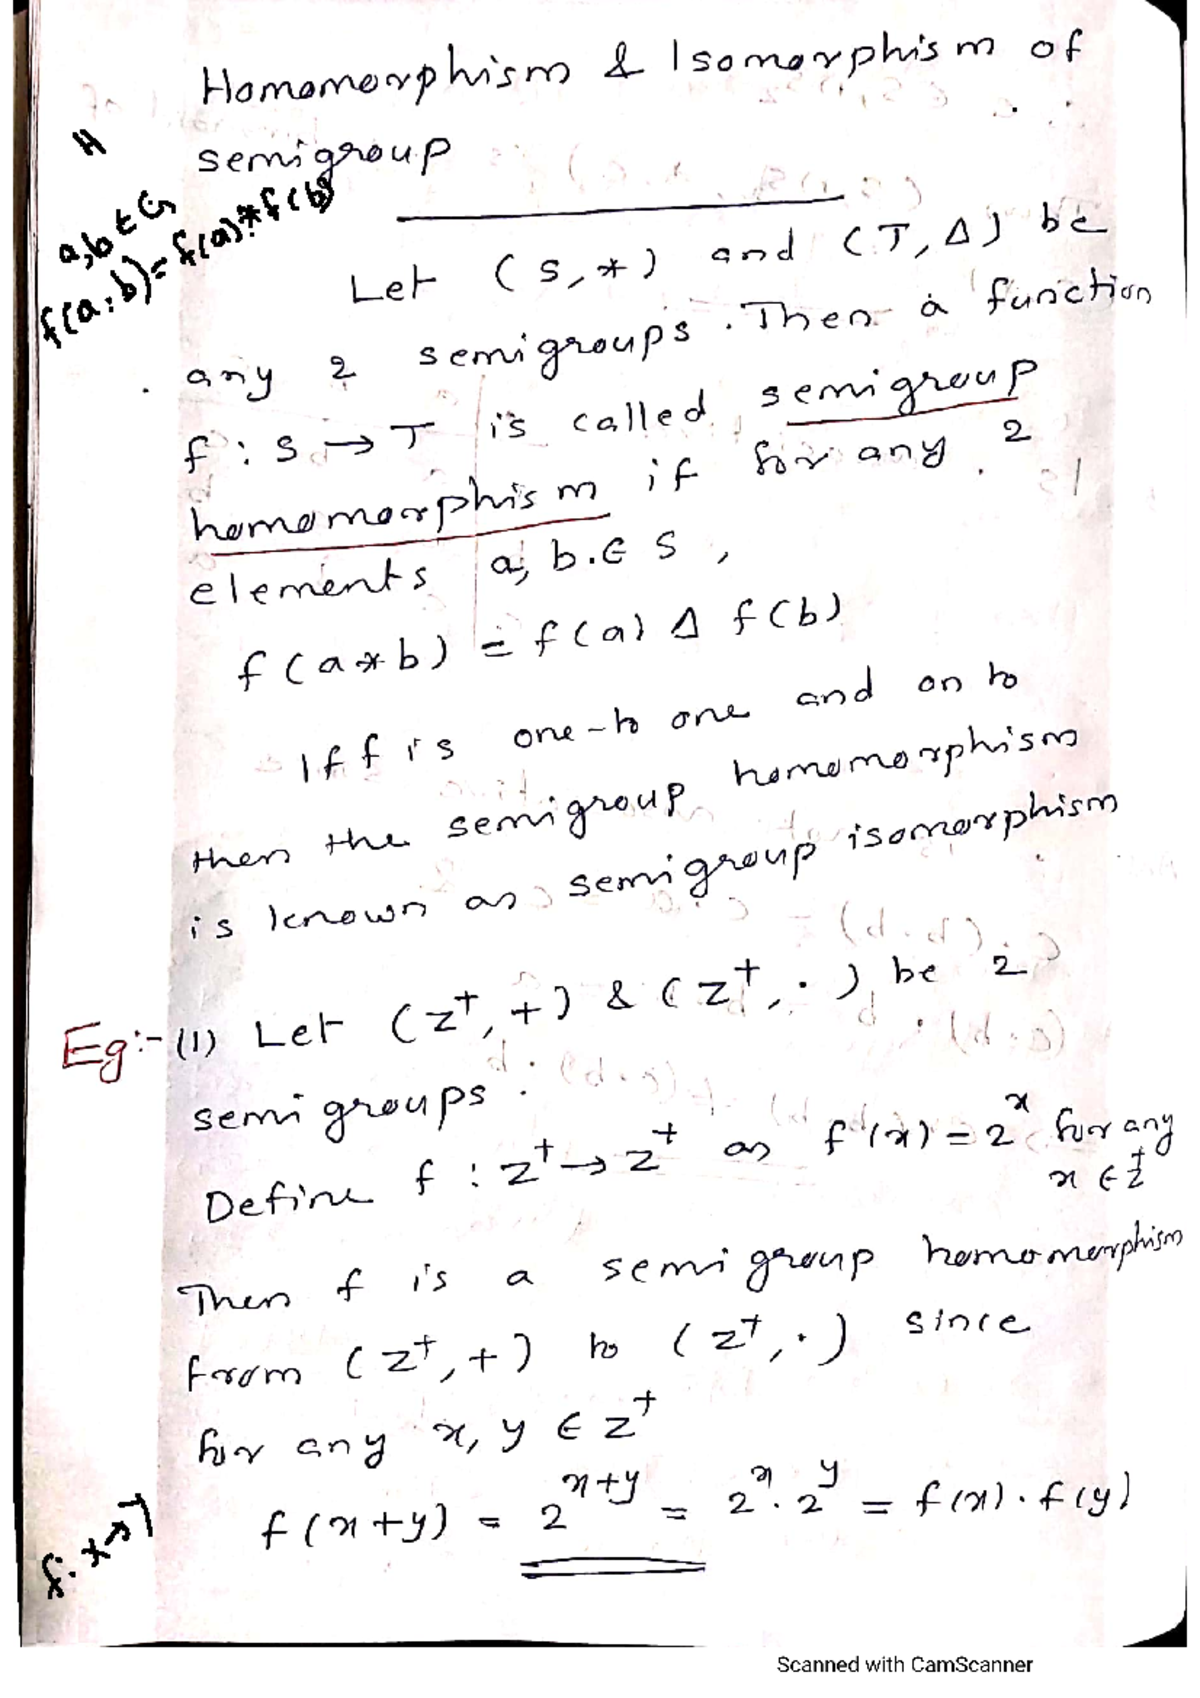 Homomorphism & Isomorphism of
semigroup
H
a,b ∈ G
f(a.b) = f(a)*f(b)
Let (S, *) and (T, Δ) be
any 2 semigroups. Then a function
f : S → T is called semigroup
homomorphism if for any 2
elements a, b ∈ S,
f(a*b) = f(a) Δ f(b)
If f is one-to one and on to
then the semigroup homomorphism
is known as semigroup isomorphism
Eg:- (1) Let (Z⁺, +) & (Z⁺, .) be 2
semi groups.
Define f : Z⁺ → Z⁺ as f(x) = 2ˣ for any
x ∈ Z⁺
Then f is a semi group homomorphism
from (Z⁺, +) to (Z⁺, .) since
for any x, y ∈ Z⁺
f(x+y) = 2ˣ⁺ʸ = 2ˣ . 2ʸ = f(x) . f(y)
f: x→y
Scanned with CamScanner